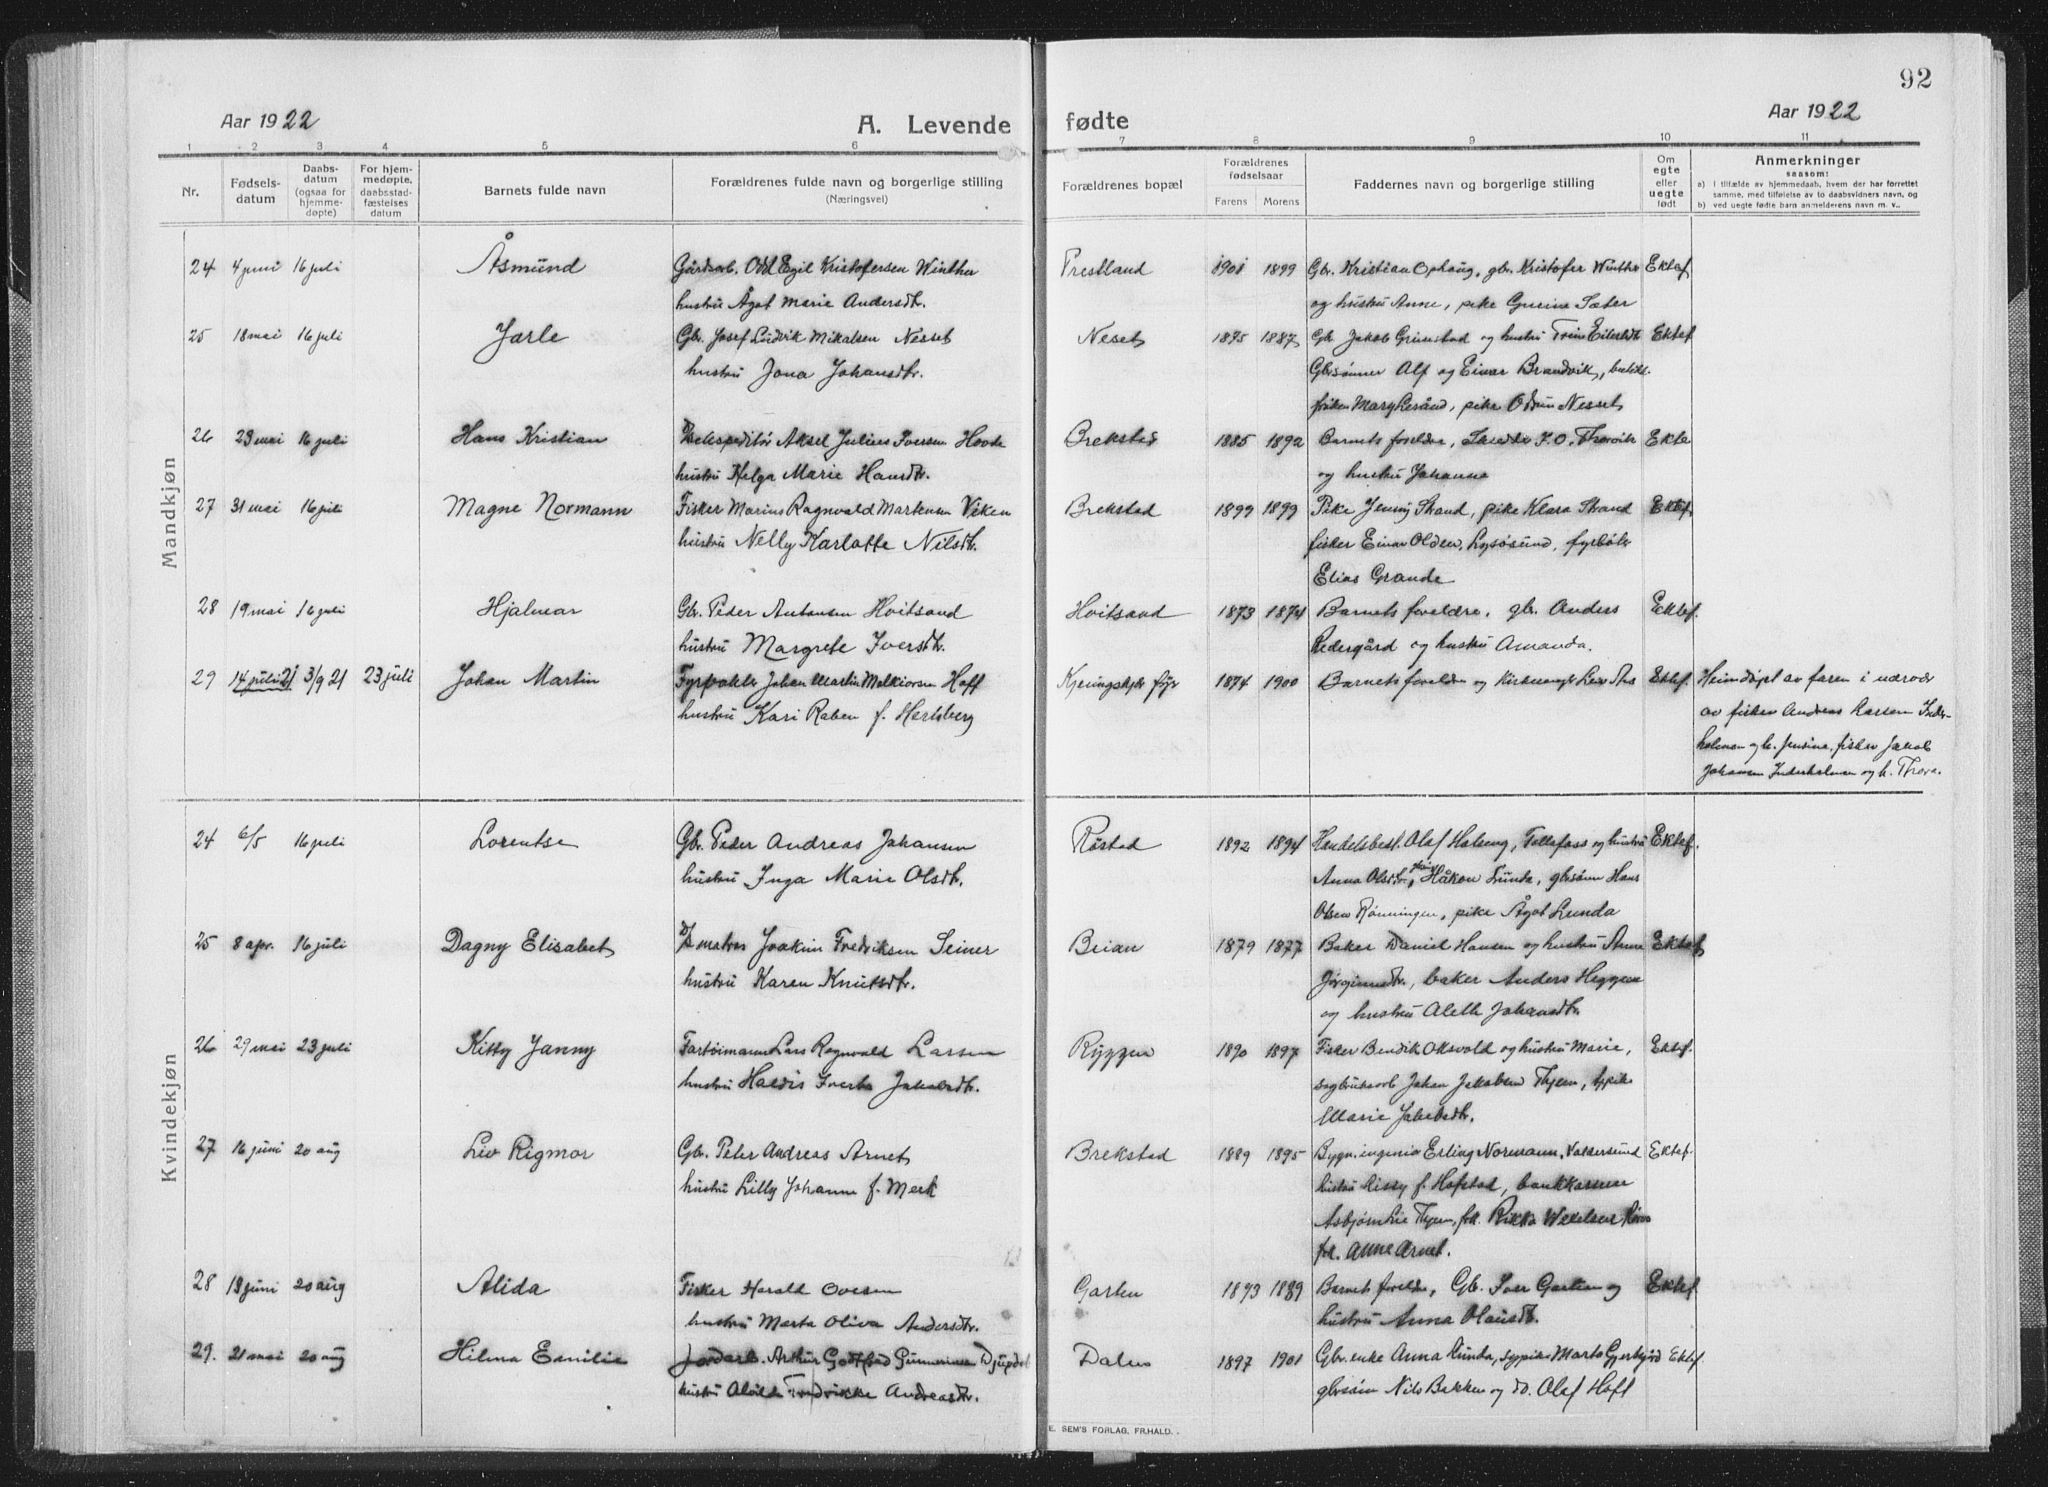 92
Aar 1922
A. Levende fødte
Aar 1922
1 2 3 4 5 6 7 8 9 10 11
Nr.
Fødsels-
datum
Daabs-
datum
(ogsaa for
hjemme-
døpte)
For hjem-
medøpte,
daabsstad-
fæstelses
datum
Barnets fulde navn
Forældrenes fulde navn og borgerlige stilling
(Næringsvei)
Forældrenes bopæl
Forældrenes
fødselsaar
Farens Morens
Faddernes navn og borgerlige stilling
Om
egte
eller
uegte
født
Anmerkninger
saasom:
a) i tilfælde av hjemmedaab, hvem der har forrettet
samme, med tilføielse av to daabsvidners navn, og
b) ved uegte fødte barn anmelderens navn m. v..
Mandkjøn
24 4 juni 16 juli Åsmund Gårdarb. Odd Engil Kristofersen Winther Prestland 1901 1899 Gbr. Kristian Ophaug, gbr. Kristofer Winther Ektef.
hustru Ågot Marie Andersdtr. og hustru Anne, pike Gurine Sæter
25 18 mai 16 juli Jarle Gbr. Josef Ludvik Mikalsen Nesset Neset 1895 1887 Gbr. Jakob Grinstad og hustru Trine Eilertsdtr Ektef
hustru Jona Johansdtr. Gbrsønner Alf og Einar Brandvik,
frøken Mary Leraand, pike Oddrun Nesset
26 23 mai 16 juli Hans Kristian Aksel Julius Iversen Hovde Brekstad 1885 1892 Barnets foreldre, P. O. Thorvik Ekte
hustru Helga Marie Hansdtr. og hustru Johanna
27 31 mai 16 juli Magne Normann Fisker Marius Ragnvald Martensen Viken Brekstad 1899 1899 Pike Jenny Strand, pike Klara Strand Ektef.
hustru Nelly Karlotte Nilsdtr. fisker Einar Olden, Lysøsund, fyrbøter
Elias Grande
28 19 mai 16 juli Hjalmar Gbr. Peder Antonsen Hoitsand Hoitsand 1873 1874 Barnets foreldre, gbr. Anders Ektef.
hustru Margrete Iversdtr. Redergård og hustru Amanda.
29 14 juli 21 3/9 21 23 juli Johan Martin Fyrvokter Johan Martin Melkiorsen Hoff Kjeringskjær fyr 1874 1900 Barnets foreldre og Ektef. Heimdøpt av faren i nærvær
hustru Kari Raben f. Hertsberg av fisker Andreas Larsen Inder-
holmen og h. Jensine, fisker Jakob
Johansen Inderholmen og h. Thora.
Kvindekjøn
24 6/5 16 juli Lorentse Gbr. Peder Andreas Johansen Røstad 1892 1894 Handelsbest. Olaf Halseng, Tollefass og hustru Ektef.
hustru Inga Marie Olsdtr. Anna Olsdtr., Håkon Lunda, gbrsønn Hans
Olsen Rønningen, pike Ågot Lunda
25 8 apr. 16 juli Dagny Elisabet D/S matros Joakim Fredriksen Seiner Beian 1879 1877 Baker Daniel Hansen og hustru Anna Ektef
hustru Karen Knutsdtr. Jørginnsdtr., baker Anders Heggem
og hustru Aleth Johansdtr.
26 29 mai 23 juli Kitty Janny Fartøimann Lars Ragnvald Larsen Ryggen 1890 1897 Fisker Bendik Oksvold og hustru Marie, Ektef.
hustru Haldis Iverta Jakobsdtr. sagbruksarb Johan Jakobsen Thyem,
Marie Jakobsdtr.
27 16 juni 20 aug Liv Rigmor Gbr. Peter Andreas Arnet Brekstad 1889 1895 Bygn. ingeniør Erling Normann, Valsersund Ektef.
hustru Lilly Johanne f. Merk hustru Rissy f. Hofstad, bankkasserer
Asbjørn Lie Thyem, frk. Rikka Wexelsen
frk. Anne Arnet.
28 19 juni 20 aug Alida Fisker Harald Ovesen Garten 1893 1889 Barnets foreldre, Gbr. Iver Garten og Ektef
hustru Marta Oliva Andersdtr. hustru Anna Olausdtr.
29. 21 mai 20 aug Hilma Emilie Jordarb. Arthur Godtfred Gunnerius Djupdal Dalen 1897 1901 Gbr. enke Anna Lunda, sypike Marta Gjerbjød Ektef
hustru Alvilde Fredrikke Andreasdtr. gbrsønn Nils Bakken og do. Olaf Hoff
E. SEM'S FORLAG, FR.HALD.